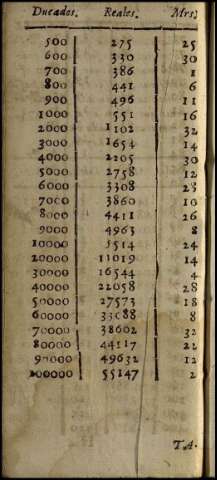 Ducados. Reales. Mrs.
500 275 25
600 330 30
700 386 1
800 441 6
900 496 11
1000 551 16
2000 1102 32
3000 1654 14
4000 2205 30
5000 2758 12
6000 3308 28
7000 3860 10
8000 4411 26
9000 4963 8
10000 5514 24
20000 11019 14
30000 16544 4
40000 22058 28
50000 27573 18
60000 33088 8
70000 38602 32
80000 44117 22
90000 49632 12
100000 55147 2
TA.